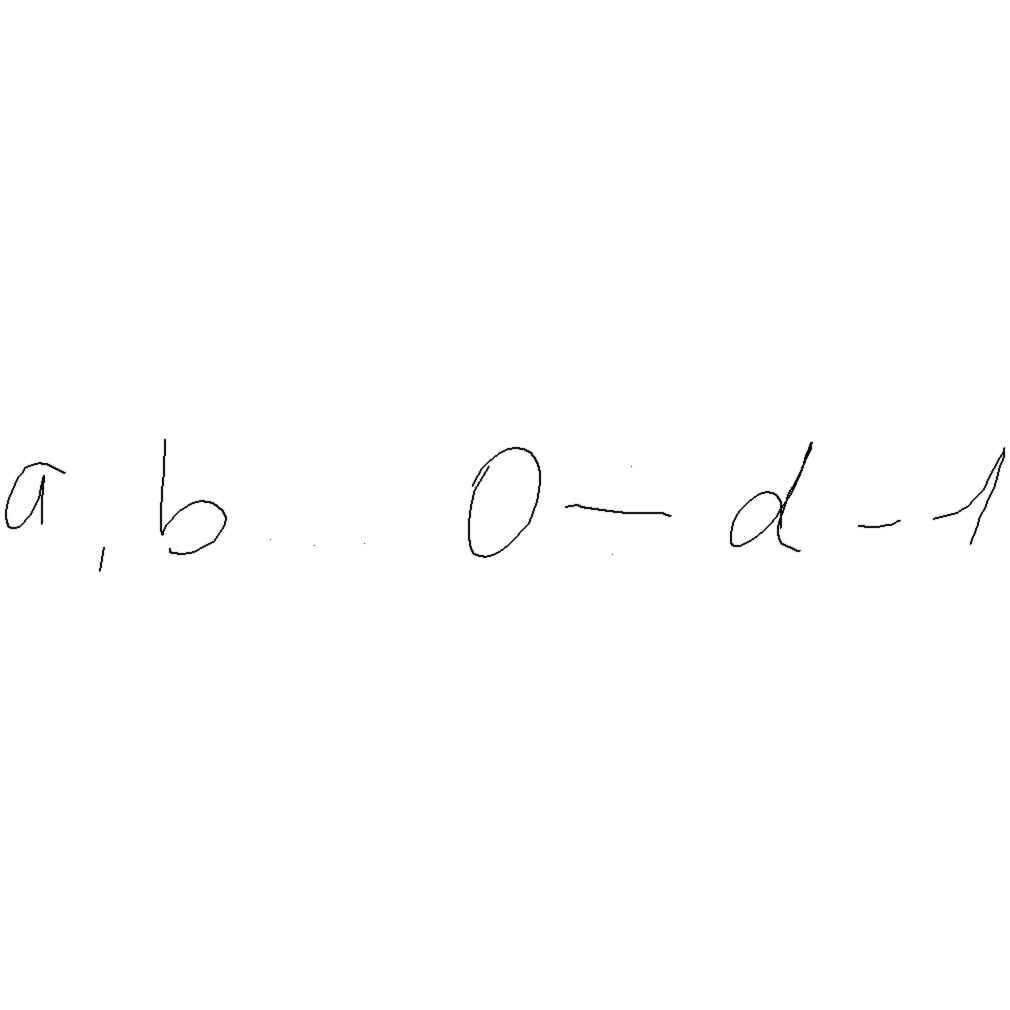 a, b ... 0 ÷ d - 1